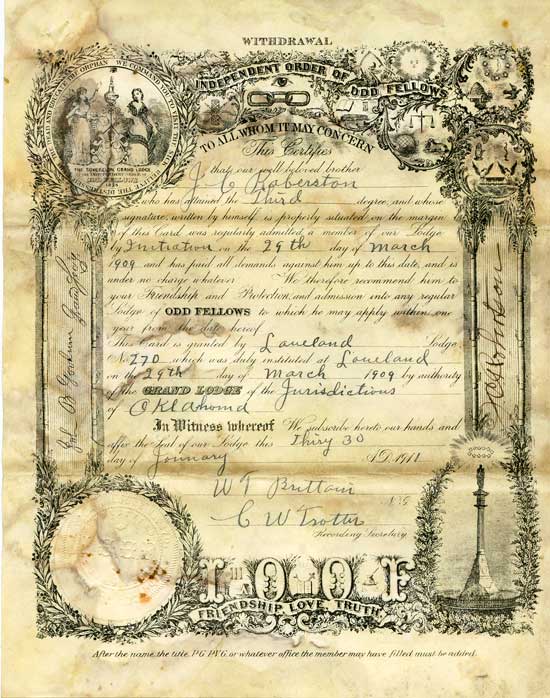 WITHDRAWAL
INDEPENDENT ORDER OF ODD FELLOWS
WE COMMAND YOU TO VISIT THE SICK, RELIEVE THE DISTRESSED, BURY THE DEAD AND EDUCATE THE ORPHAN
THE SOVEREIGN GRAND LODGE
TO ALL WHOM IT MAY CONCERN
This Certifies
that our well beloved brother
J. C. Roberston
who has attained the Third degree, and whose
signature, written by himself is properly situated on the margin
of this Card was regularly admitted a member of our Lodge
by Initiation on the 29th day of March
1909 and has paid all demands against him up to this date, and is
under no charge whatever. We therefore recommend him to
your Friendship and Protection, and admission into any regular
Lodge of ODD FELLOWS to which he may apply within one
year from the date hereof.
This Card is granted by Loveland Lodge
No. 270 which was duly instituted at Loveland
on the 29th day of March 1909 by authority
of the GRAND LODGE of the Jurisdictions
of Oklahoma
In Witness whereof We subscribe hereto our hands and
affix the Seal of our Lodge this Thiry 30
day of Jonuary A.D. 1911
W T Brittain N.G.
C W Trotter
Recording Secretary
I O O F
FRIENDSHIP, LOVE, TRUTH
After the name, the title, P.G. P.V.G. or whatever office the member may have filled must be added.